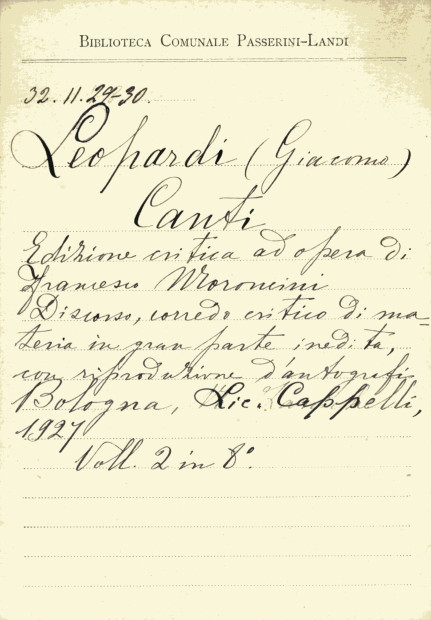 BIBLIOTECA COMUNALE PASSERINI-LANDI
32.11.29-30.
Leopardi (Giacomo)
Canti
Edizione critica ad opera di
Francesco Moroncini
Discorso, corredo critico di ma-
teria in gran parte inedita,
con riproduzione d'autografi
Bologna, Lic. Cappelli,
1927
Voll. 2 in 8°.